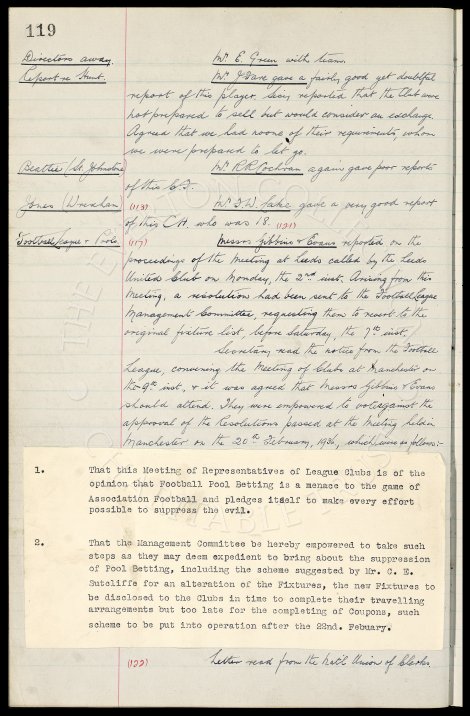 119
Directors away. Mr. E. Green with team.
Report re Hunt. Mr. J. Dare gave a fairly good yet doubtful
report of this player, being reported that the Club were
not prepared to sell but would consider an exchange.
Agreed that we had noone of their requirements, whom
we were prepared to let go.
Beattie (St. Johnstone Mr. R.R. Cochran again gave poor reports
of this C.F.
Jones (Wrexham (113) Mr. W. gave a very good report
of this C.H. who was 18. (121)
Football League & Pools. (117) Messrs Gibbins & Evans reported on the
proceedings of the Meeting at Leeds called by the Leeds
United Club on Monday, the 2nd inst. Arising from this
Meeting, a resolution had been sent to the Football League
Management Committee, requesting them to resort to the
original fixture list, before Saturday, the 7th inst.
Secretary read the notice from the Football
League, convening the Meeting of Clubs at Manchester on
the 9th inst, & it was agreed that Messrs Gibbins & Evans
should attend. They were empowered to vote against the
approval of the Resolutions passed at the Meeting held in
Manchester on the 20th February, 1936, which were as follows:-
1. That this Meeting of Representatives of League Clubs is of the
opinion that Football Pool Betting is a menace to the game of
Association Football and pledges itself to make every effort
possible to suppress the evil.
2. That the Management Committee be hereby empowered to take such
steps as they may deem expedient to bring about the suppression
of Pool Betting, including the scheme suggested by Mr. C. E.
Sutcliffe for an alteration of the Fixtures, the new Fixtures to
be disclosed to the Clubs in time to complete their travelling
arrangements but too late for the completing of Coupons, such
scheme to be put into operation after the 22nd. Febuary.
(122) Letter read from the Natl. Union of Clerks